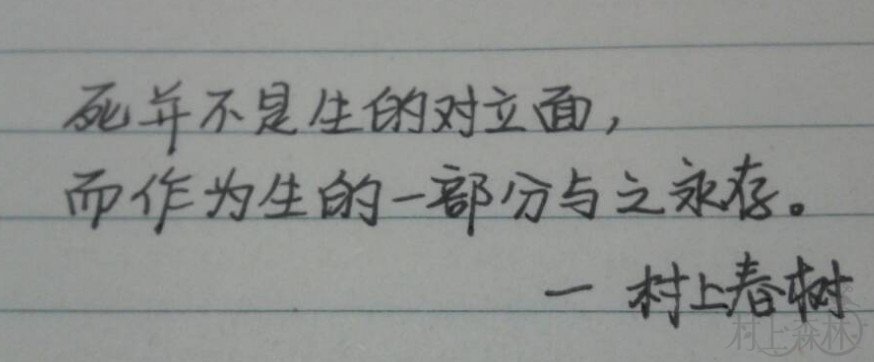 死并不是生的对立面，
而作为生的一部分与之永存。
一 村上春树
村上森林